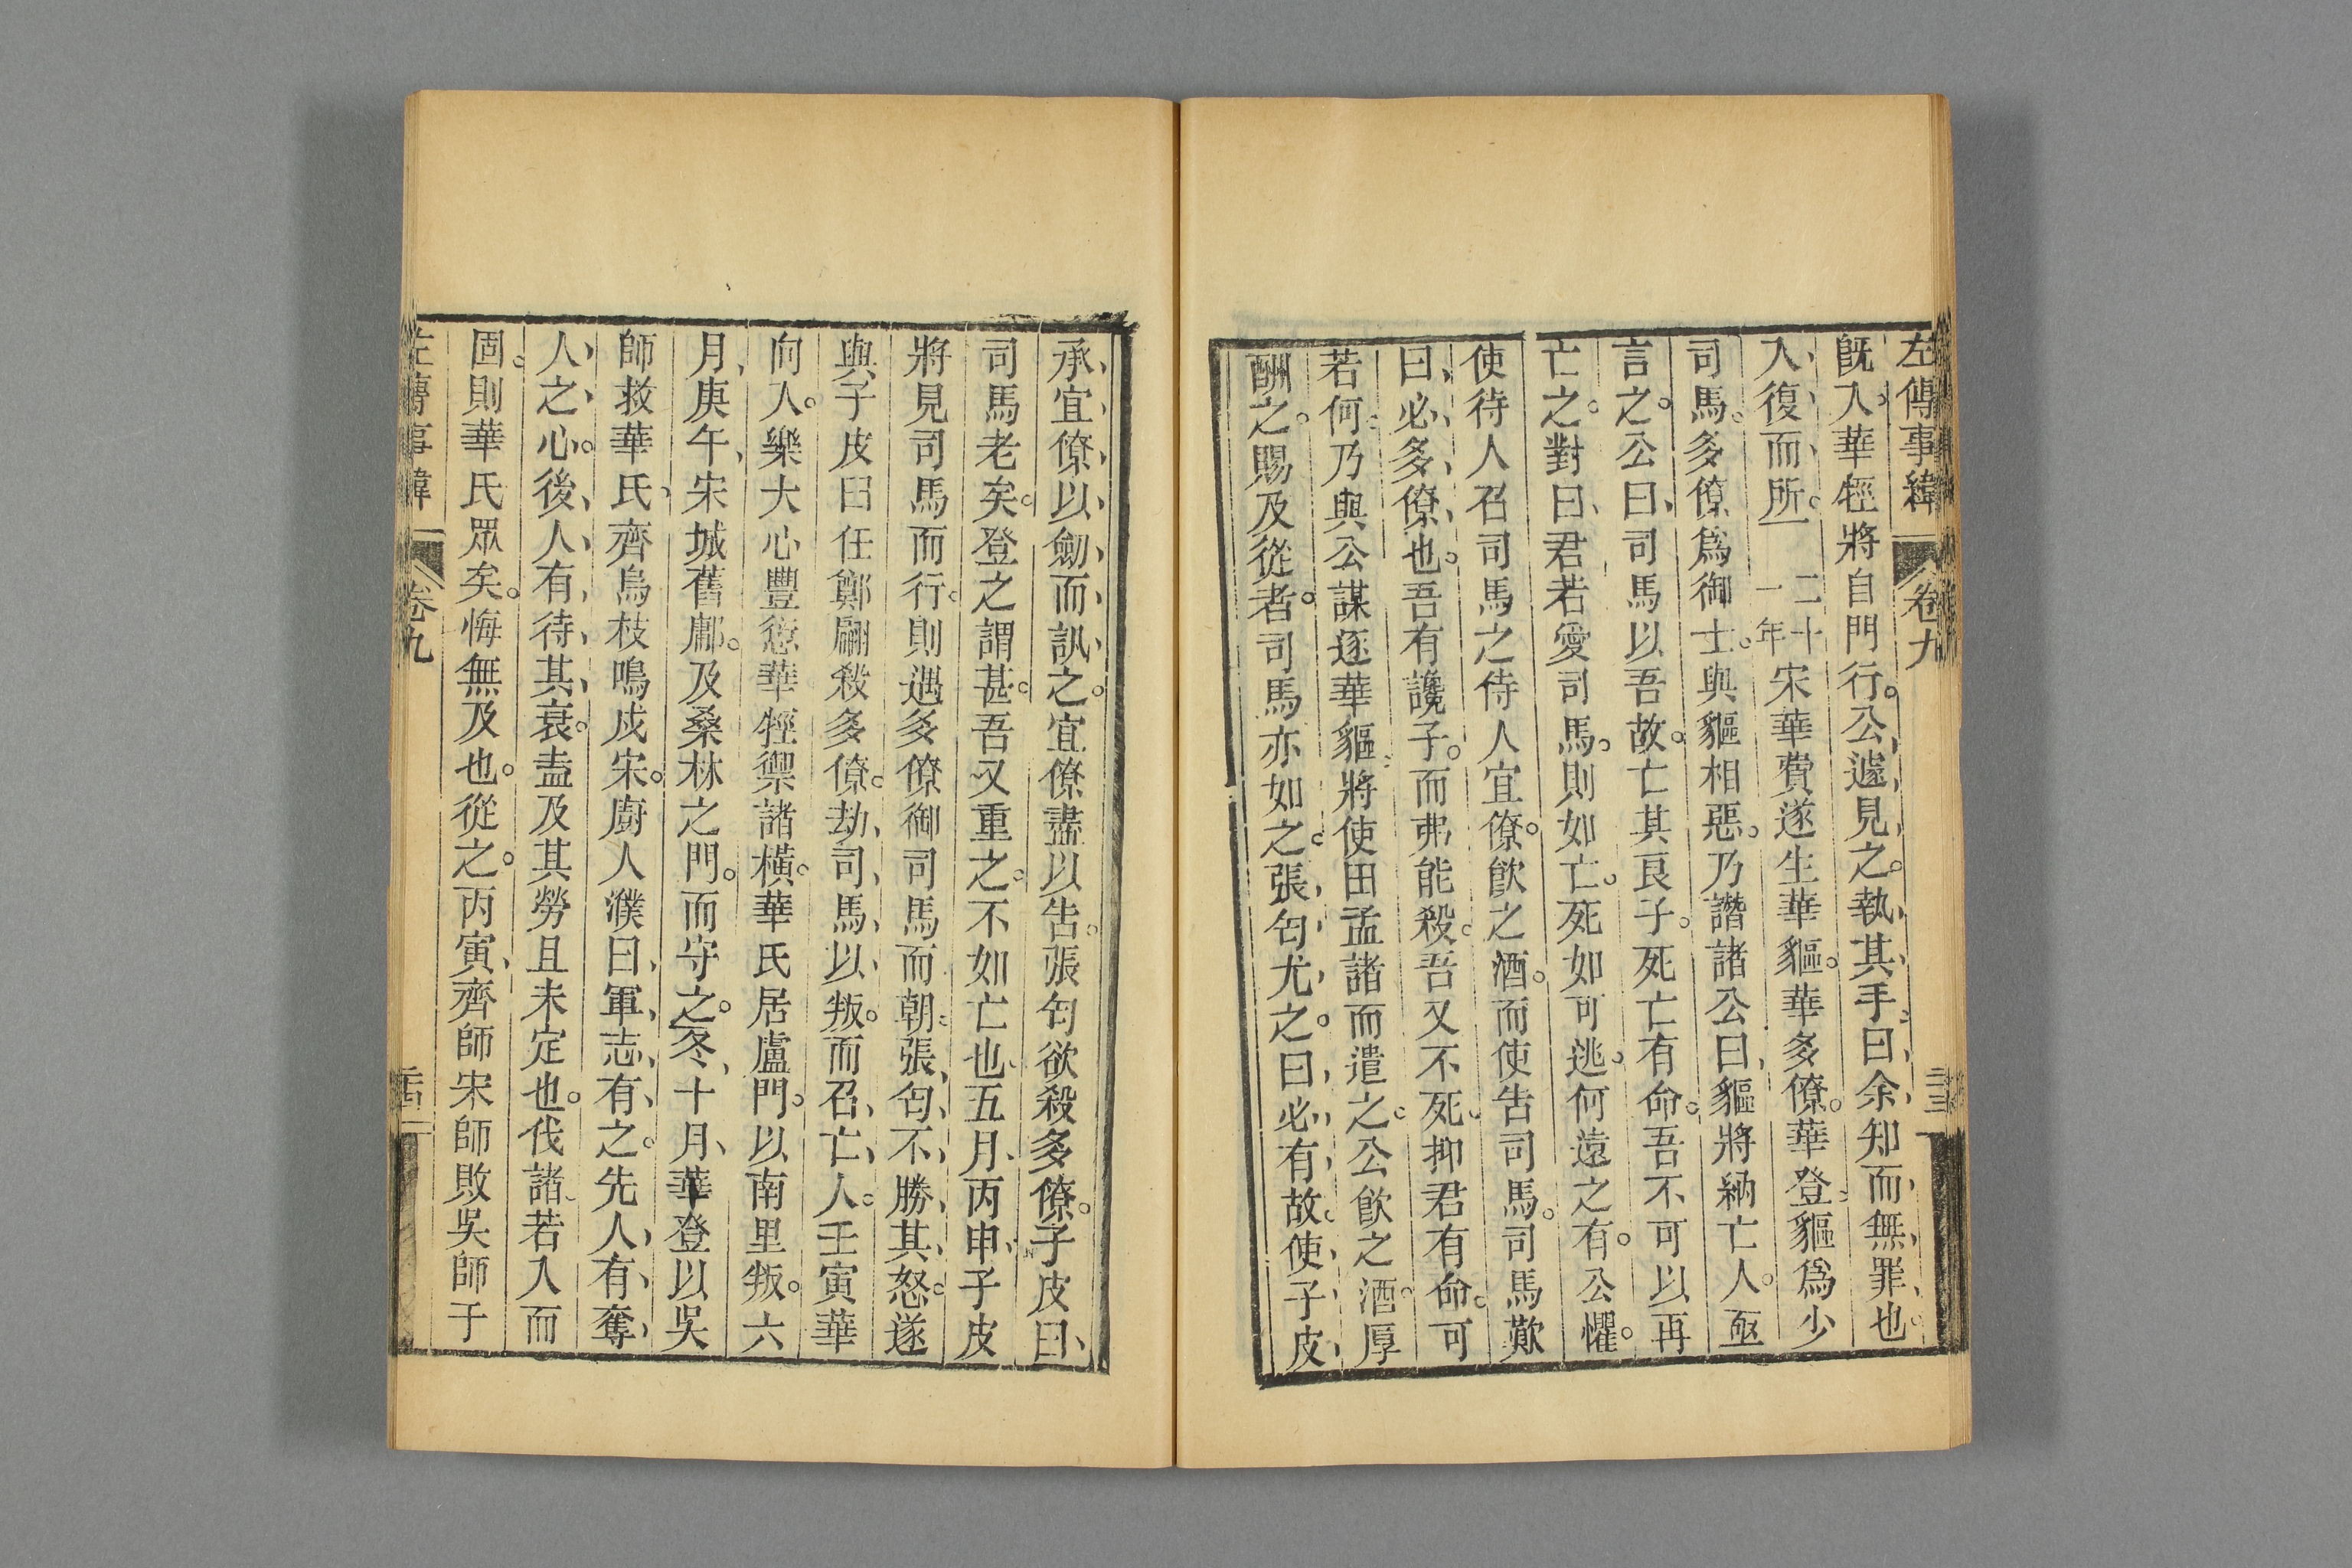 左傳事緯 卷九 二十三
旣入華牼將自門行。公遽見之。執其手曰余知而無罪也。
入復而所。二十一年宋華費遂生華貙。華多僚。華登。貙爲少
司馬。多僚爲御士。與貙相惡。乃譖諸公曰貙將納亡人。亟
言之。公曰司馬以吾故。亡其良子。死亡有命。吾不可以再
亡之。對曰君若愛司馬。則如亡。死如可逃。何遠之有。公懼。
使待人召司馬之侍人宜僚。飮之酒。而使告司馬。司馬歎
曰必多僚也。吾有讒子。而弗能殺。吾又不死。抑君有命。可
若何。乃與公謀逐華貙。將使田孟諸而遣之。公飮之酒。厚
酬之。賜及從者。司馬亦如之。張匄尤之。曰必有故。使子皮
承宜僚以劒而訊之。宜僚盡以告。張匄欲殺多僚。子皮曰
司馬老矣。登之謂甚。吾又重之。不如亡也五月丙申子皮
將見司馬而行。則遇多僚御司馬而朝。張匄不勝其怒。遂
與子皮臼任鄭翩殺多僚。劫司馬以叛。而召亡人。壬寅華
向入。樂大心豐愆華牼禦諸橫。華氏居盧門。以南里叛。六
月庚午宋城舊鄘。及桑林之門。而守之。冬十月華登以吳
師救華氏齊烏枝鳴戍宋。廚人濮曰軍志有之。先人有奪
人之心。後人有待其衰。盍及其勞且未定也。伐諸若入而
固。則華氏眾矣。悔無及也。從之。丙寅齊師宋師敗吳師于
左傳事緯 卷九 二十四